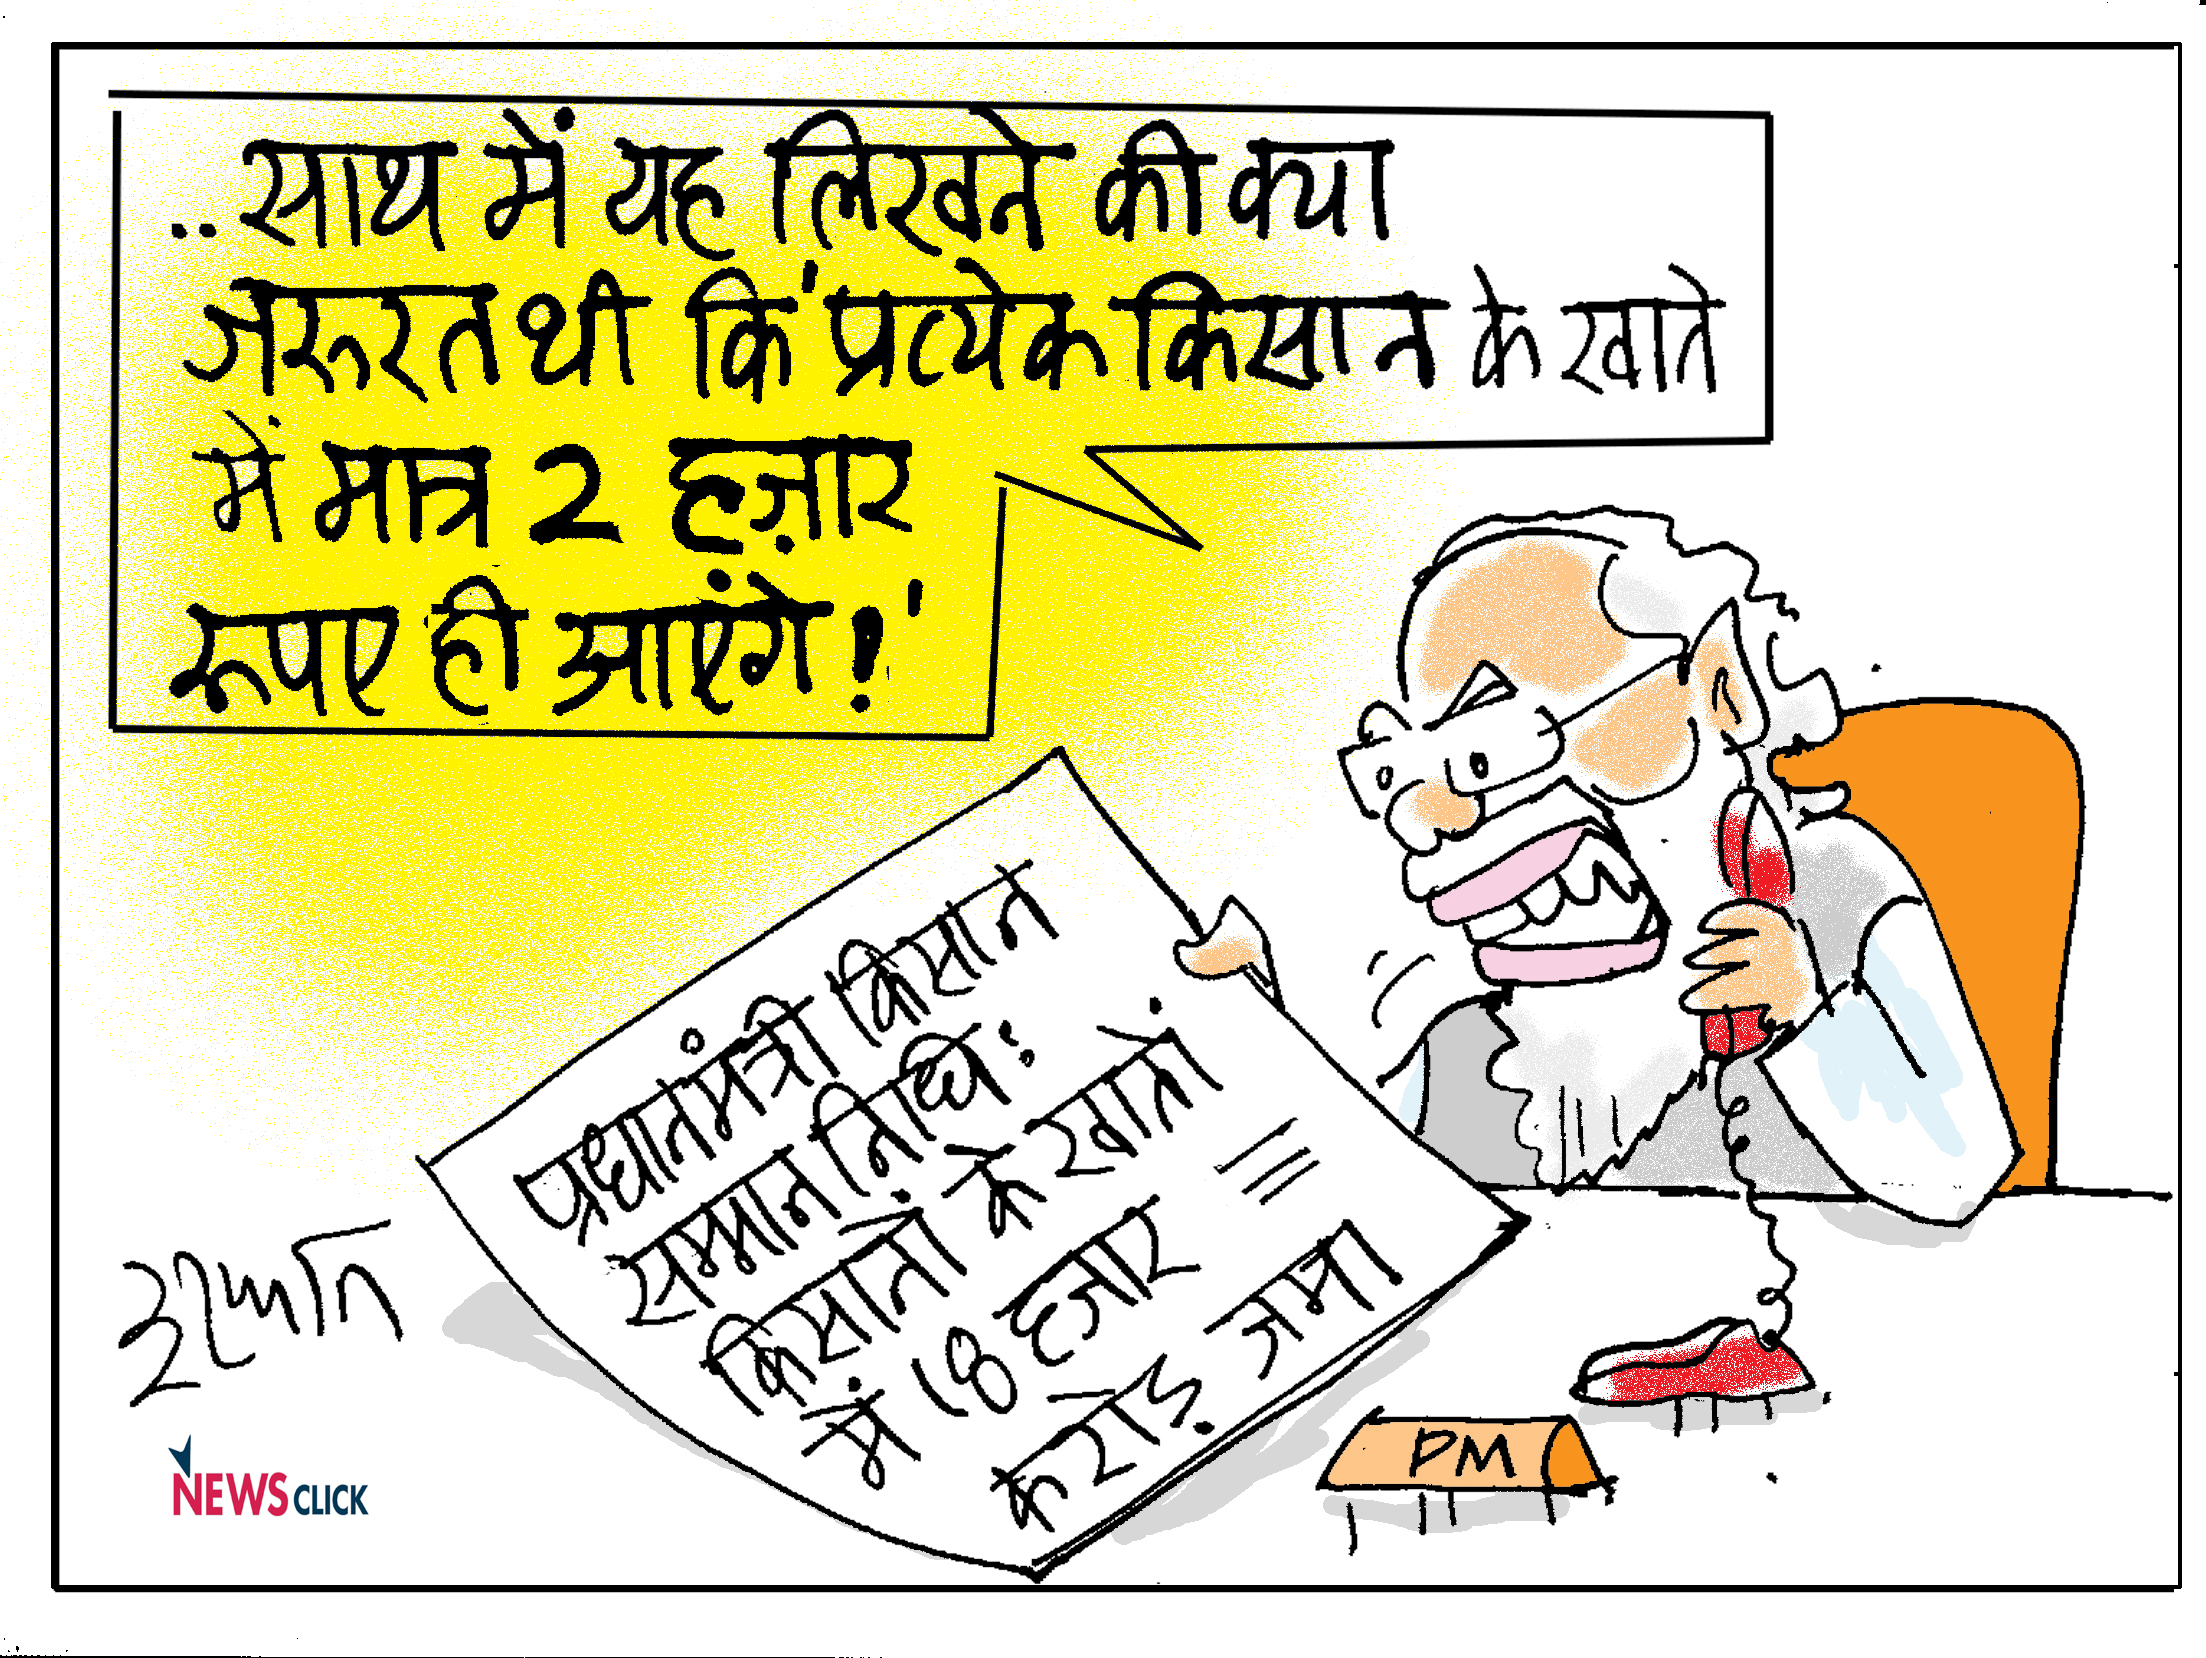 ..साथ में यह लिखने की क्या
ज़रूरत थी कि 'प्रत्येक किसान के खाते
में मात्र 2 हज़ार
रूपए ही आएंगे!'
प्रधानमंत्री किसान
सम्मान निधि:
किसानों के खातों
में 18 हजार
करोड़ जमा
इरफान
PM
NEWSCLICK